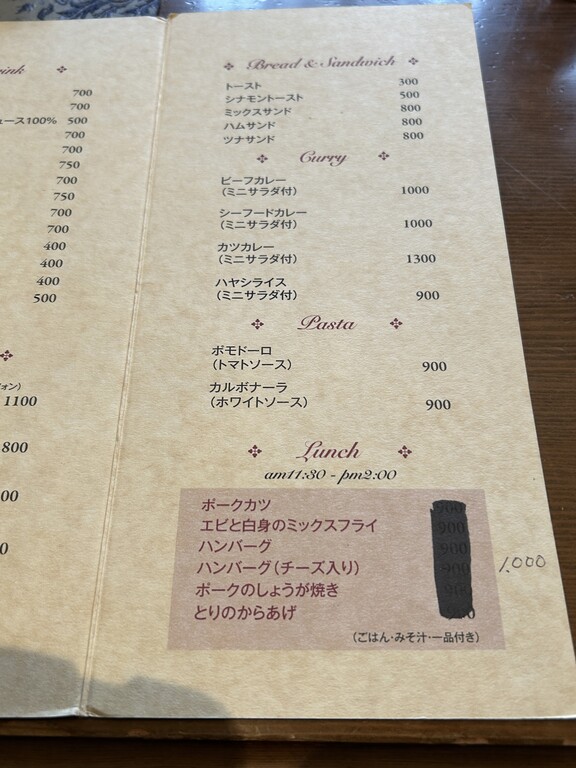 700
700
ュース100% 500
700
700
750
700
750
700
700
400
400
400
500
1100
800
Bread & Sandwich
トースト 300
シナモントースト 500
ミックスサンド 800
ハムサンド 800
ツナサンド 800
Curry
ビーフカレー
(ミニサラダ付) 1000
シーフードカレー
(ミニサラダ付) 1000
カツカレー
(ミニサラダ付) 1300
ハヤシライス
(ミニサラダ付) 900
Pasta
ポモドーロ
(トマトソース) 900
カルボナーラ
(ホワイトソース) 900
Lunch
am11:30 - pm2:00
ポークカツ 900
エビと白身のミックスフライ 900
ハンバーグ 900
ハンバーグ(チーズ入り) 900 1,000
ポークのしょうが焼き 900
とりのからあげ 900
(ごはん・みそ汁・一品付き)